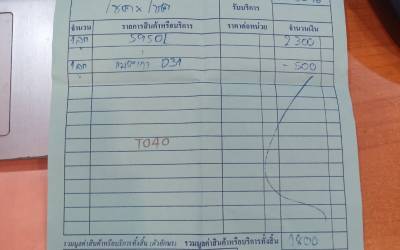 รับบริการ
จำนวน รายการสินค้าหรือบริการ ราคาต่อหน่วย จำนวนเงิน
1 ลูก 5950L 2300
1 ลูก D31 - 500
T040
รวมมูลค่าสินค้าหรือบริการทั้งสิ้น (ตัวอักษร) รวมมูลค่าสินค้าหรือบริการทั้งสิ้น 1800